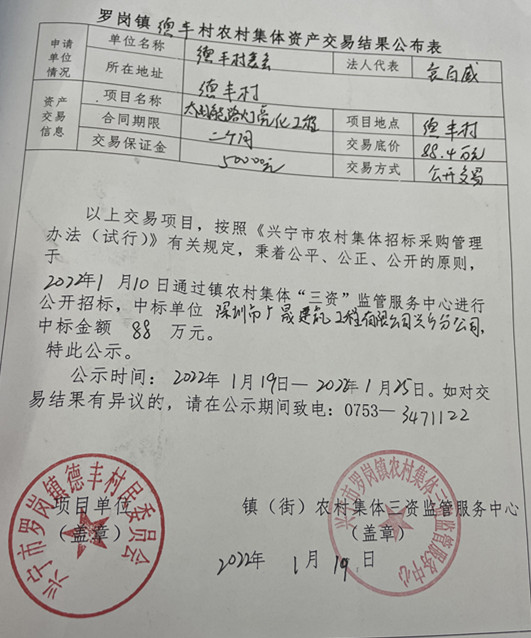 罗岗镇德丰村农村集体资产交易结果公布表
申请单位情况 单位名称 德丰村委会 法人代表 袁百威
所在地址 德丰村
资产交易信息 项目名称 太阳能路灯亮化工程 项目地点 德丰村
合同期限 二个月 交易底价 88.4万元
交易保证金 50000元 交易方式 公开交易
以上交易项目，按照《兴宁市农村集体招标采购管理
办法（试行）》有关规定，秉着公平、公正、公开的原则，
于
2022年1月10日通过镇农村集体“三资”监管服务中心进行
公开招标，中标单位 深圳市广晟建筑工程有限公司兴宁分公司，
中标金额 88 万元。
特此公示。
公示时间：2022年1月19日—2022年1月25日。如对交
易结果有异议的，请在公示期间致电：0753—3471122
项目单位
（盖章）
镇（街）农村集体三资监管服务中心
（盖章）
2022年1月19日
兴宁市罗岗镇德丰村民委员会
兴宁市罗岗镇农村集体三资监管服务中心